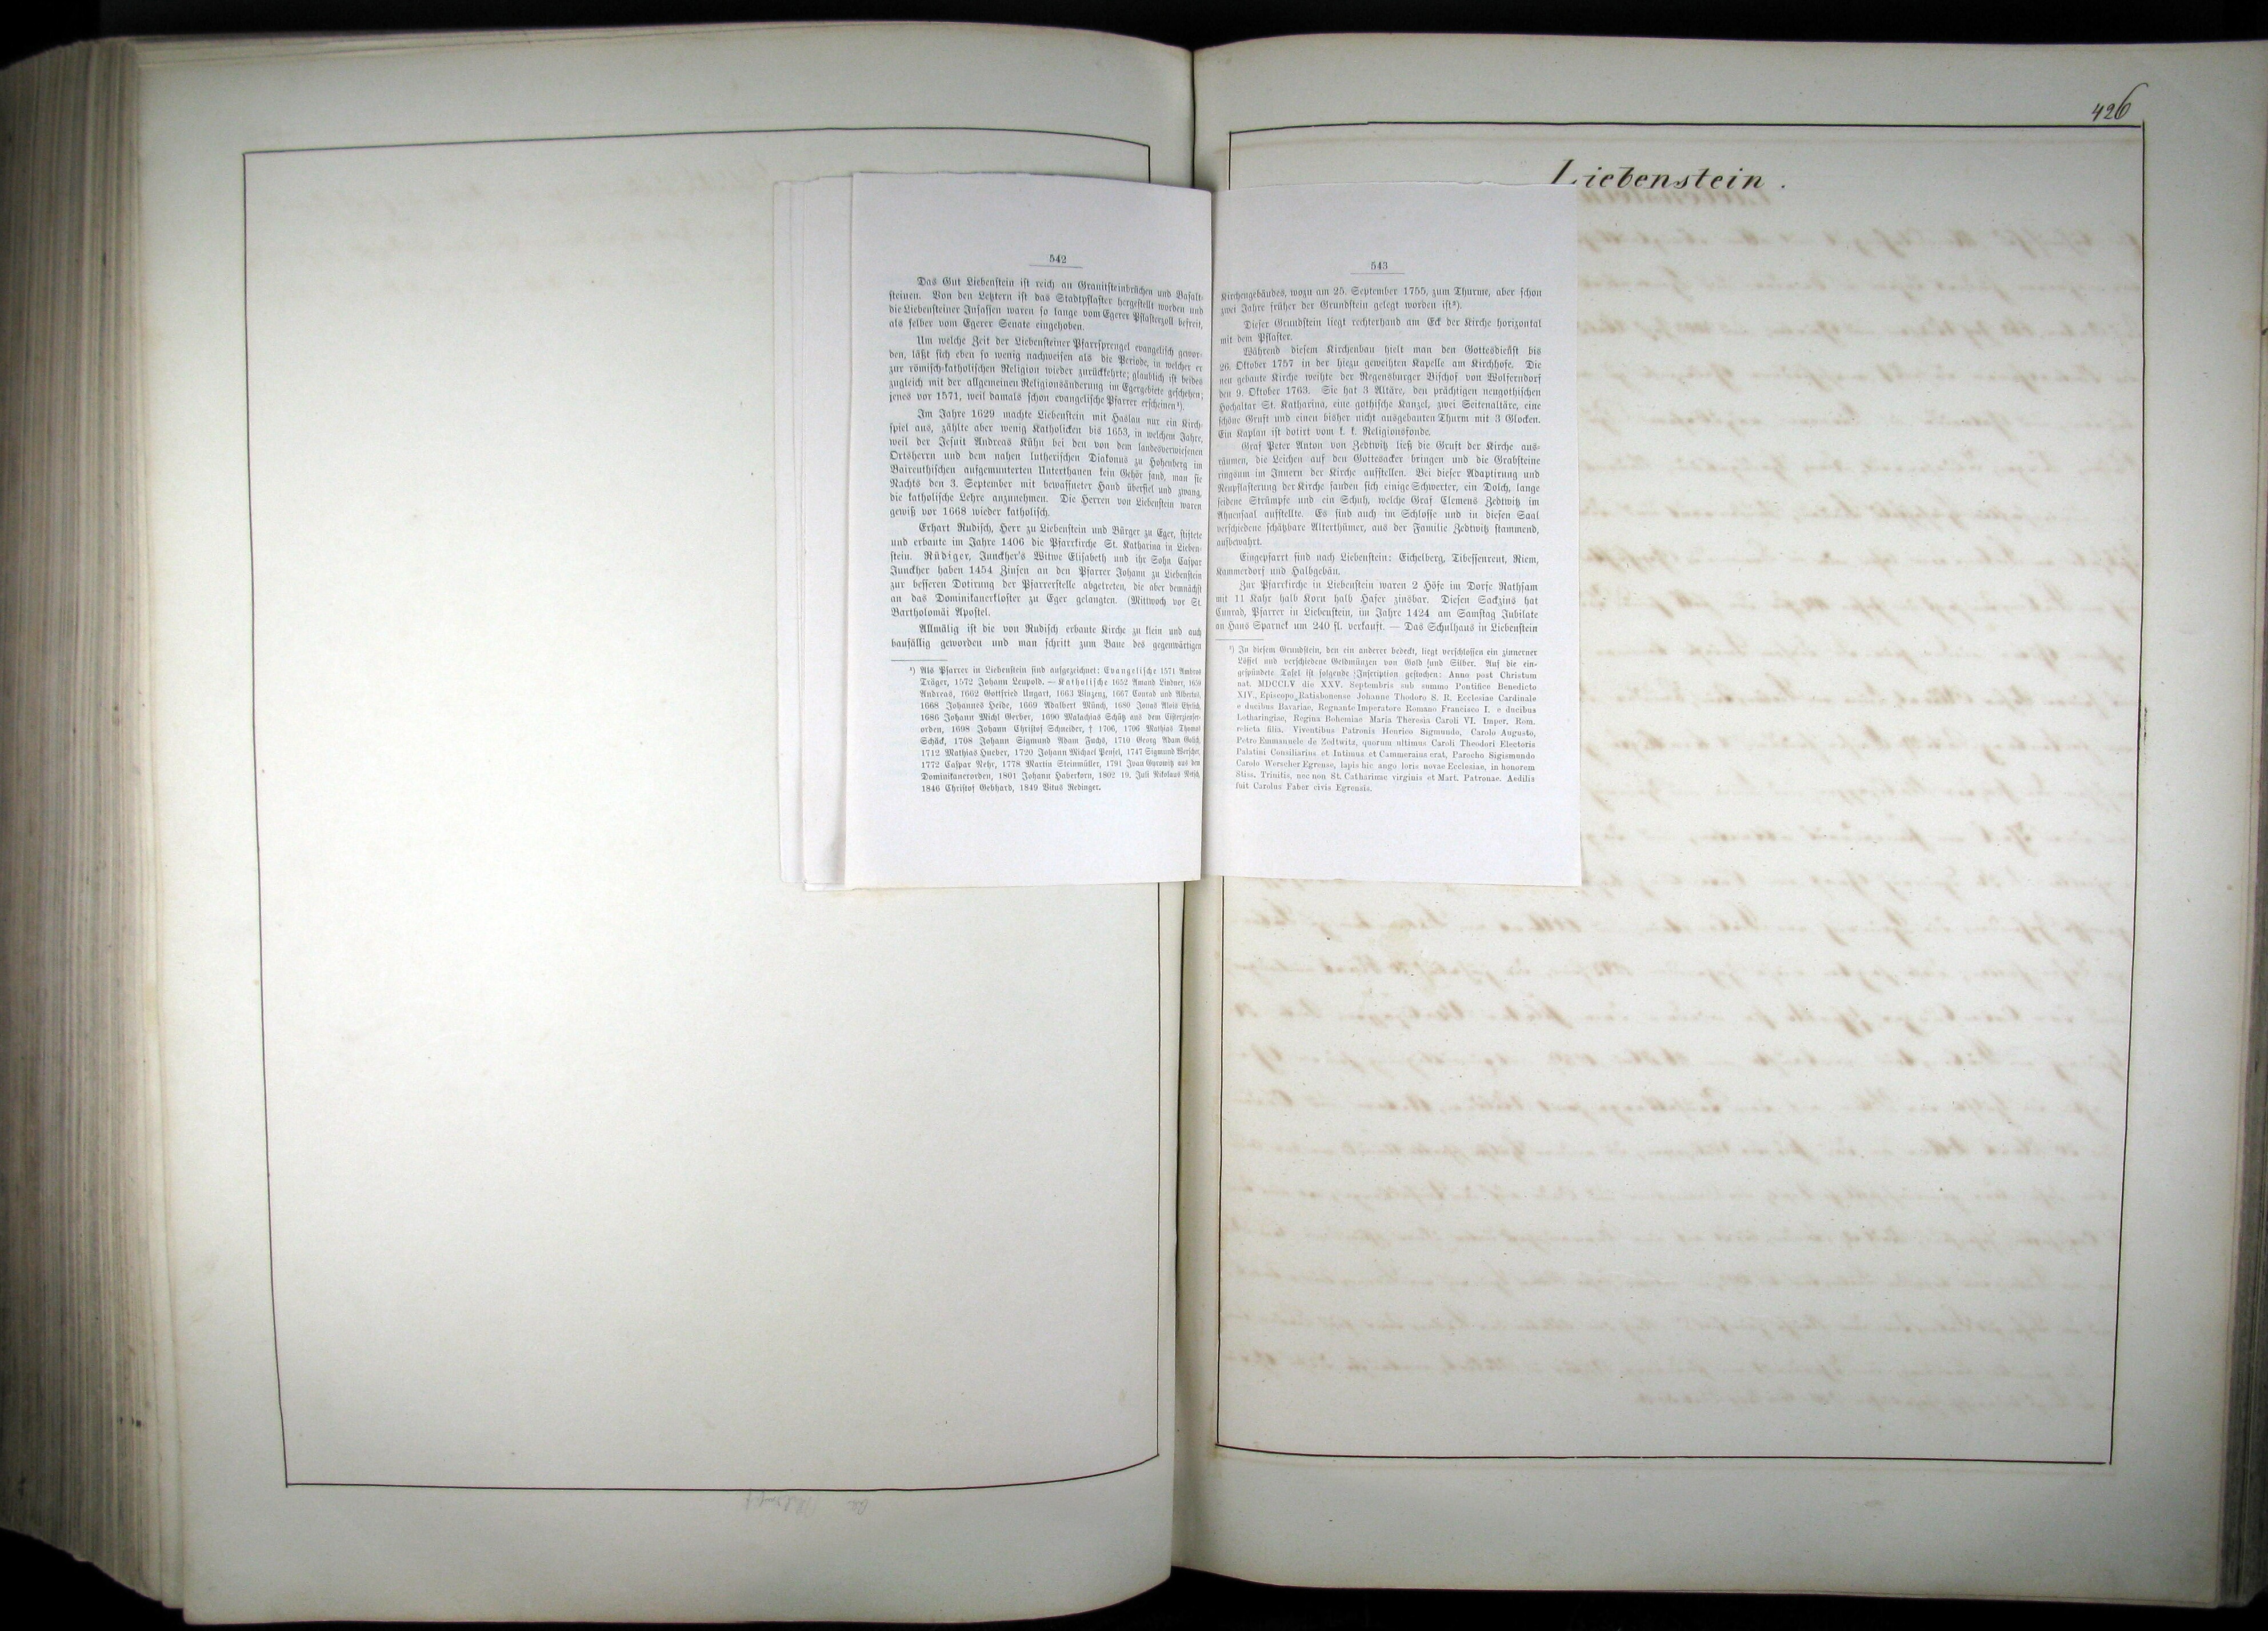 426
Liebenstein.
542
Das Gut Liebenstein ist reich an Granitsteinbrüchen und Basalt-
steinen. Von den Letztern ist das Stadtpflaster hergestellt worden und
die Liebensteiner Insassen waren so lange vom Egerer Pflasterzoll befreit,
als selber vom Egerer Senate eingehoben.
Um welche Zeit der Liebensteiner Pfarrsprengel evangelisch gewor-
den, läßt sich eben so wenig nachweisen als die Periode, in welcher er
zur römisch-katholischen Religion wieder zurückkehrte; glaublich ist beides
zugleich mit der allgemeinen Religionsänderung im Egergebiete geschehen;
jenes vor 1571, weil damals schon evangelische Pfarrer erscheinen¹).
Im Jahre 1629 machte Liebenstein mit Haslau nur ein Kirch-
spiel aus, zählte aber wenig Katholicken bis 1653, in welchem Jahre,
weil der Jesuit Andreas Kühn bei den von dem landesverwiesenen
Ortsherrn und dem nahen lutherischen Diakonus zu Hohenberg im
Baireuthischen aufgemunterten Unterthanen kein Gehör fand, man sie
Nachts den 3. September mit bewaffneter Hand überfiel und zwang,
die katholische Lehre anzunehmen. Die Herren von Liebenstein waren
gewiß vor 1668 wieder katholisch.
Erhart Rudisch, Herr zu Liebenstein und Bürger zu Eger, stiftete
und erbaute im Jahre 1406 die Pfarrkirche St. Katharina in Lieben-
stein. Rüdiger, Junckher's Witwe Elisabeth und ihr Sohn Caspar
Junckher haben 1454 Zinsen an den Pfarrer Johann zu Liebenstein
zur besseren Dotirung der Pfarrerstelle abgetreten, die aber demnächst
an das Dominikanerkloster zu Eger gelangten. (Mittwoch vor St.
Bartholomäi Apostel.
Allmälig ist die von Rudisch erbaute Kirche zu klein und auch
baufällig geworden und man schritt zum Baue des gegenwärtigen
¹) Als Pfarrer in Liebenstein sind aufgezeichnet: Evangelische 1571 Ambros
Träger, 1572 Johann Leupold. — Katholische 1652 Amand Lindner, 1659
Andreas, 1662 Gottfried Ungart, 1663 Vinzenz, 1667 Conrad und Albertus,
1668 Johannes Heide, 1669 Adalbert Münch, 1680 Jonas Alois Ehrlich,
1686 Johann Michl Gerber, 1690 Malachias Schütz aus dem Cisterzienser-
orden, 1698 Johann Christof Schneider, † 1706, 1706 Mathias Thomas
Schäck, 1708 Johann Sigmund Adam Fuchs, 1710 Georg Adam
1712 Mathias Hueber, 1720 Johann Michael Pensel, 1747 Sigmund Werscher,
1772 Caspar Nehr, 1778 Martin Steinmüller, 1791 Ivan Gurowitz aus dem
Dominikanerorden, 1801 Johann Haberkorn, 1802 19. Juli Nikolaus
1846 Christof Gebhard, 1849 Vitus Redinger.
543
Kirchengebäudes, wozu am 25. September 1755, zum Thurme, aber schon
zwei Jahre früher der Grundstein gelegt worden ist²).
Dieser Grundstein liegt rechterhand am Eck der Kirche horizontal
mit dem Pflaster.
Während diesem Kirchenbau hielt man den Gottesdienst bis
26. Oktober 1757 in der hiezu geweihten Kapelle am Kirchhofe. Die
neu gebaute Kirche weihte der Regensburger Bischof von Wolferndorf
den 9. Oktober 1763. Sie hat 3 Altäre, den prächtigen neugothischen
Hochaltar St. Katharina, eine gothische Kanzel, zwei Seitenaltäre, eine
schöne Gruft und einen bisher nicht ausgebauten Thurm mit 3 Glocken.
Ein Kaplan ist dotirt vom k. k. Religionsfonde.
Graf Peter Anton von Zedtwitz ließ die Gruft der Kirche aus-
räumen, die Leichen auf den Gottesacker bringen und die Grabsteine
ringsum im Innern der Kirche aufstellen. Bei dieser Adaptirung und
Neupflasterung der Kirche fanden sich einige Schwerter, ein Dolch, lange
seidene Strümpfe und ein Schuh, welche Graf Clemens Zedtwitz im
Ahnensaal aufstellte. Es sind auch im Schlosse und in diesen Saal
verschiedene schätzbare Alterthümer, aus der Familie Zedtwitz stammend,
aufbewahrt.
Eingepfarrt sind nach Liebenstein: Eichelberg, Tibessenreut, Riem,
Kammerdorf und Halbgebäu.
Zur Pfarrkirche in Liebenstein waren 2 Höfe im Dorfe Rathsam
mit 11 Kahr halb Korn halb Hafer zinsbar. Diesen Sackzins hat
Cunrad, Pfarrer in Liebenstein, im Jahre 1424 am Samstag Jubilate
an Hans Sparnek um 240 fl. verkauft. — Das Schulhaus in Liebenstein
¹) In diesem Grundstein, den ein anderer bedeckt, liegt verschlossen ein zinnerner
Löffel und verschiedene Geldmünzen von Gold und Silber. Auf die ein-
gespündete Tafel ist folgende Inscription gestochen: Anno post Christum
nat. MDCCLV die XXV. Septembris sub summo Pontifice Benedicto
XIV., Episcopo Ratisbonense Johanne Thodoro S. R. Ecclesiae Cardinale
e ducibus Bavariae, Regnante Imperatore Romano Francisco I. e ducibus
Lotharingiae, Regina Bohemiae Maria Theresia Caroli VI. Imper. Rom.
relicta filia. Viventibus Patronis Henrico Sigmundo, Carolo Augusto,
Petro Emmanuele de Zedtwitz, quorum ultimus Caroli Theodori Electoris
Palatini Consiliarius et Intimus et Cammerains erat, Parocho Sigismundo
Carolo Werscher Egrense, lapis hic ango loris novae Ecclesiae, in honorem
Stiss. Trinitis, nec non St. Catharinae virginis et Mart. Patronae. Aedilis
fuit Carolus Faber civis Egrensis.